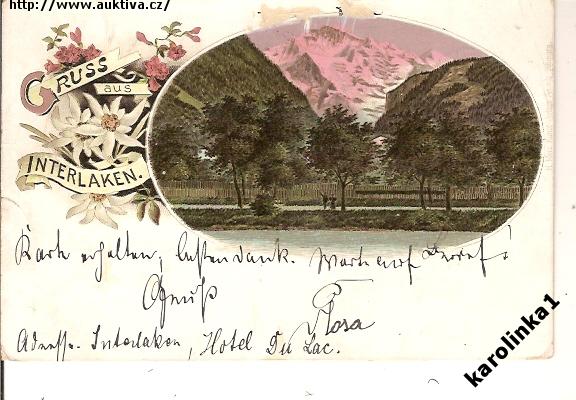 http://www.auktiva.cz/
GRUSS
aus
INTERLAKEN.
Karte erhalten, besten dank. Warte auf
Gruß
Rosa
Adresse. Interlaken, Hotel Du Lac.
karolinka1